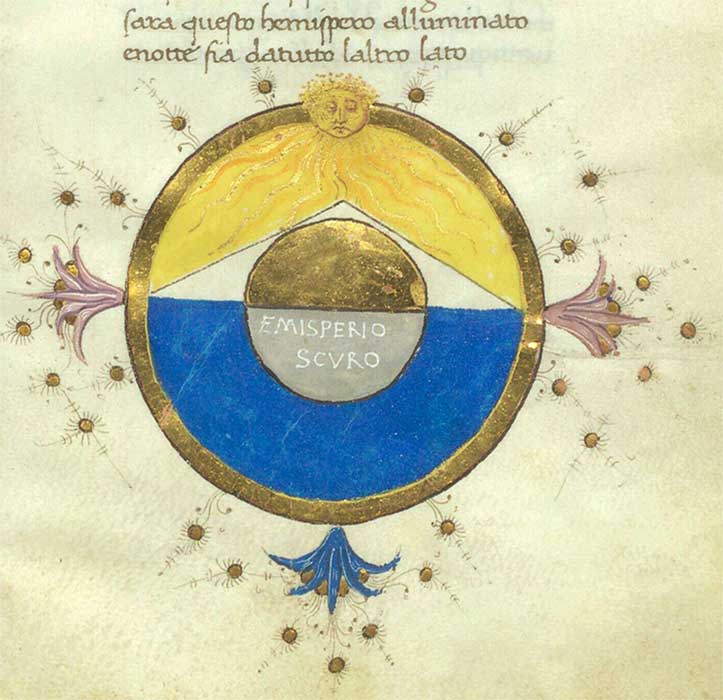 sara questo hemispero alluminato
enotte sia datutto laltro lato
EMISPERIO
SCVRO